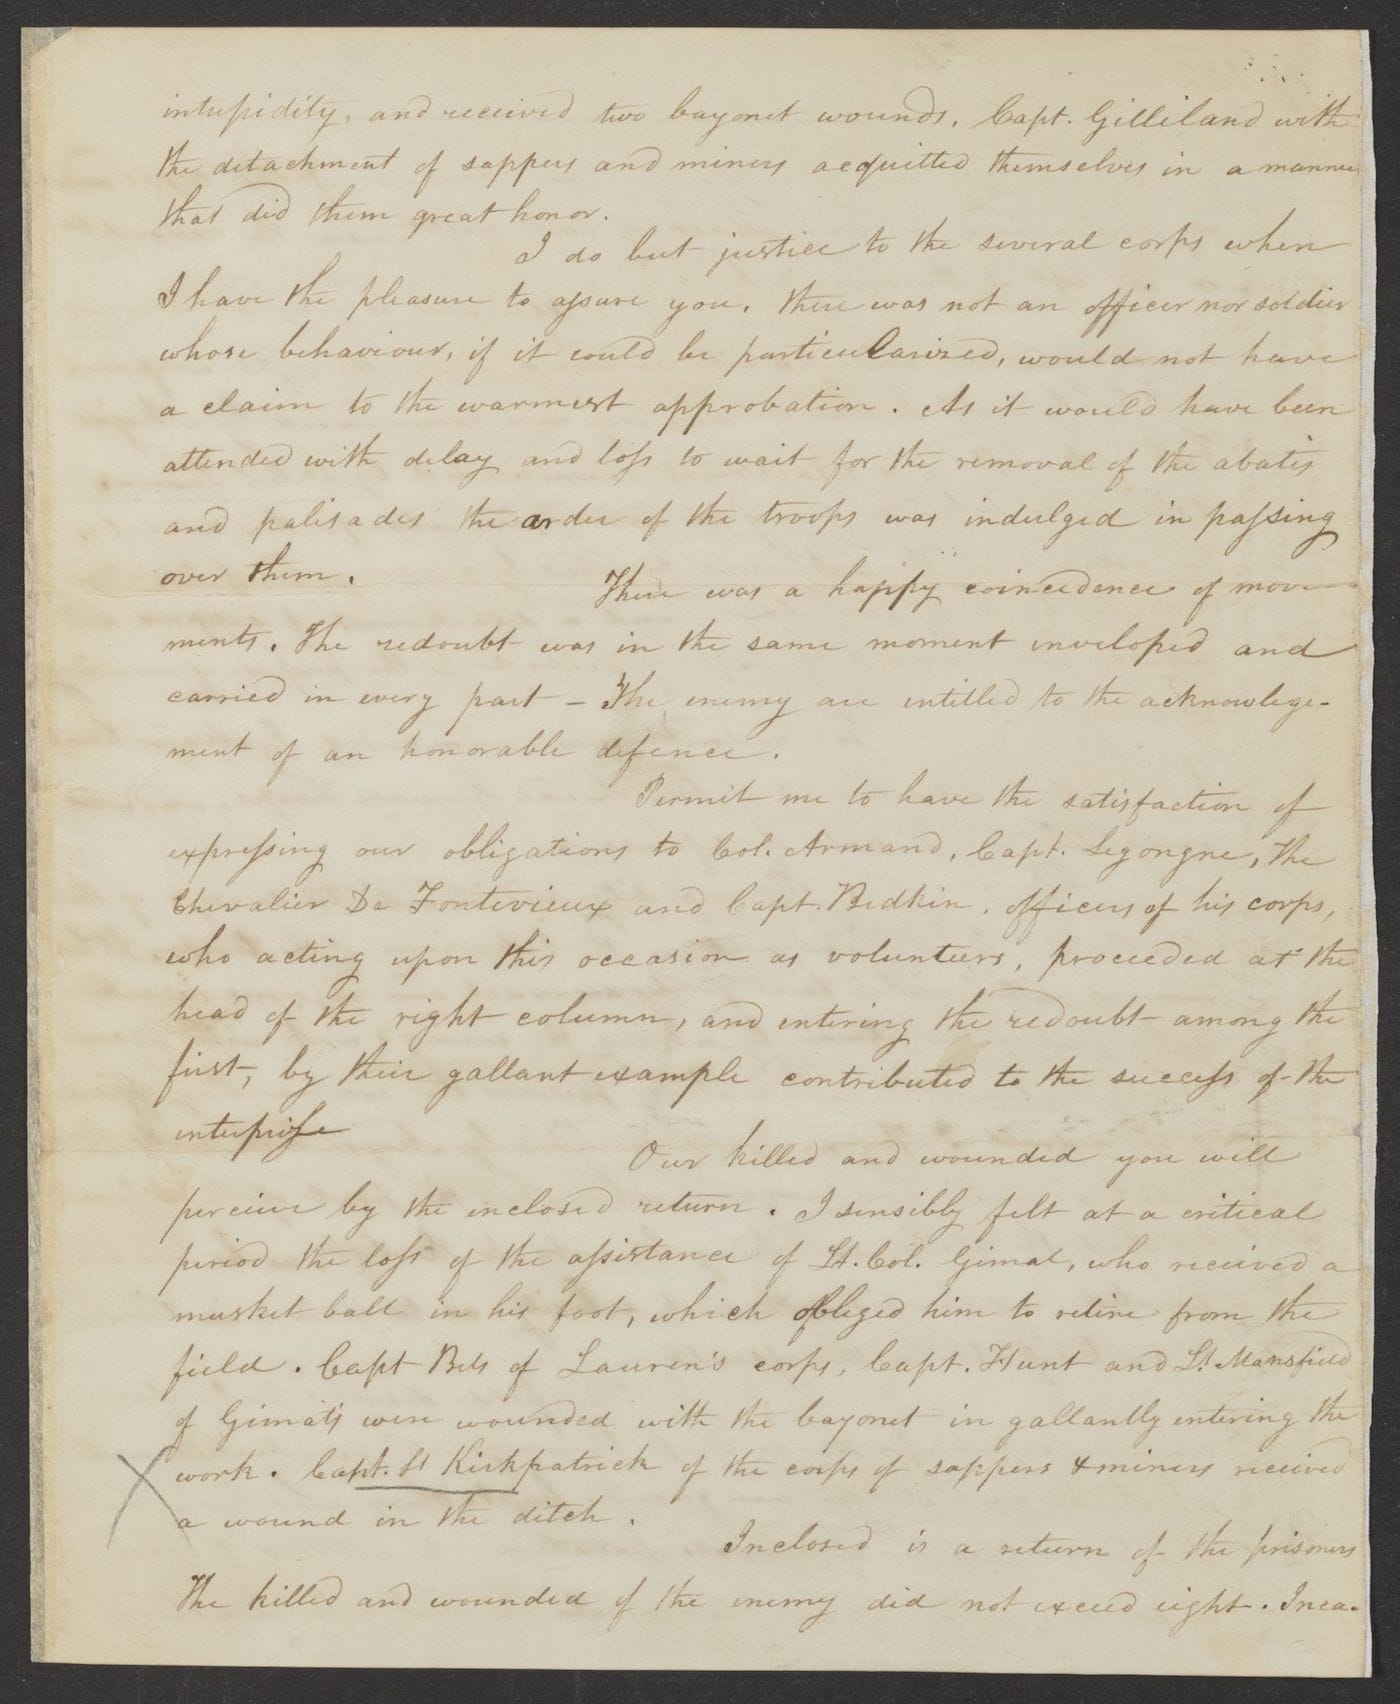 intrepidity, and received two bayonet wounds. Capt. Gilliland with
the detachment of sappers and miners acquitted themselves in a manner
that did them great honor.
I do but justice to the several corps when
I have the pleasure to assure you. there was not an officer nor soldier
whose behaviour, if it could be particularized, would not have
a claim to the warmest approbation. As it would have been
attended with delay and loss to wait for the removal of the abatis
and palisades the order of the troops was indulged in passing
over them.
There was a happy coincedence of move
ments. The redoubt was in the same moment inveloped and
carried in every part – The enemy are intitled to the acknowlege-
ment of an honorable defence.
Permit me to have the satisfaction of
expressing our obligations to Col. Armand, Capt. Segongne, the
Chevalier De Fontevieux and Capt. Bedkin, officers of his corps,
who acting upon this occasion as volunteers, proceeded at the
head of the right column, and entering the redoubt among the
first, by their gallant example contributed to the success of the
interprise
Our killed and wounded you will
perceive by the inclosed return. I sensibly felt at a critical
period the loss of the assistance of Lt. Col. Gimat, who received a
musket ball in his foot, which obliged him to retire from the
field. Capt Bets of Lauren's corps, Capt. Hunt and Lt Mansfield
of Gimat's were wounded with the bayonet in gallantly entering the
work. Capt. Lt Kirkpatrick of the corps of sappers & miners received
a wound in the ditch.
Inclosed is a return of the prisoners
The killed and wounded of the enemy did not exceed eight. Inca-